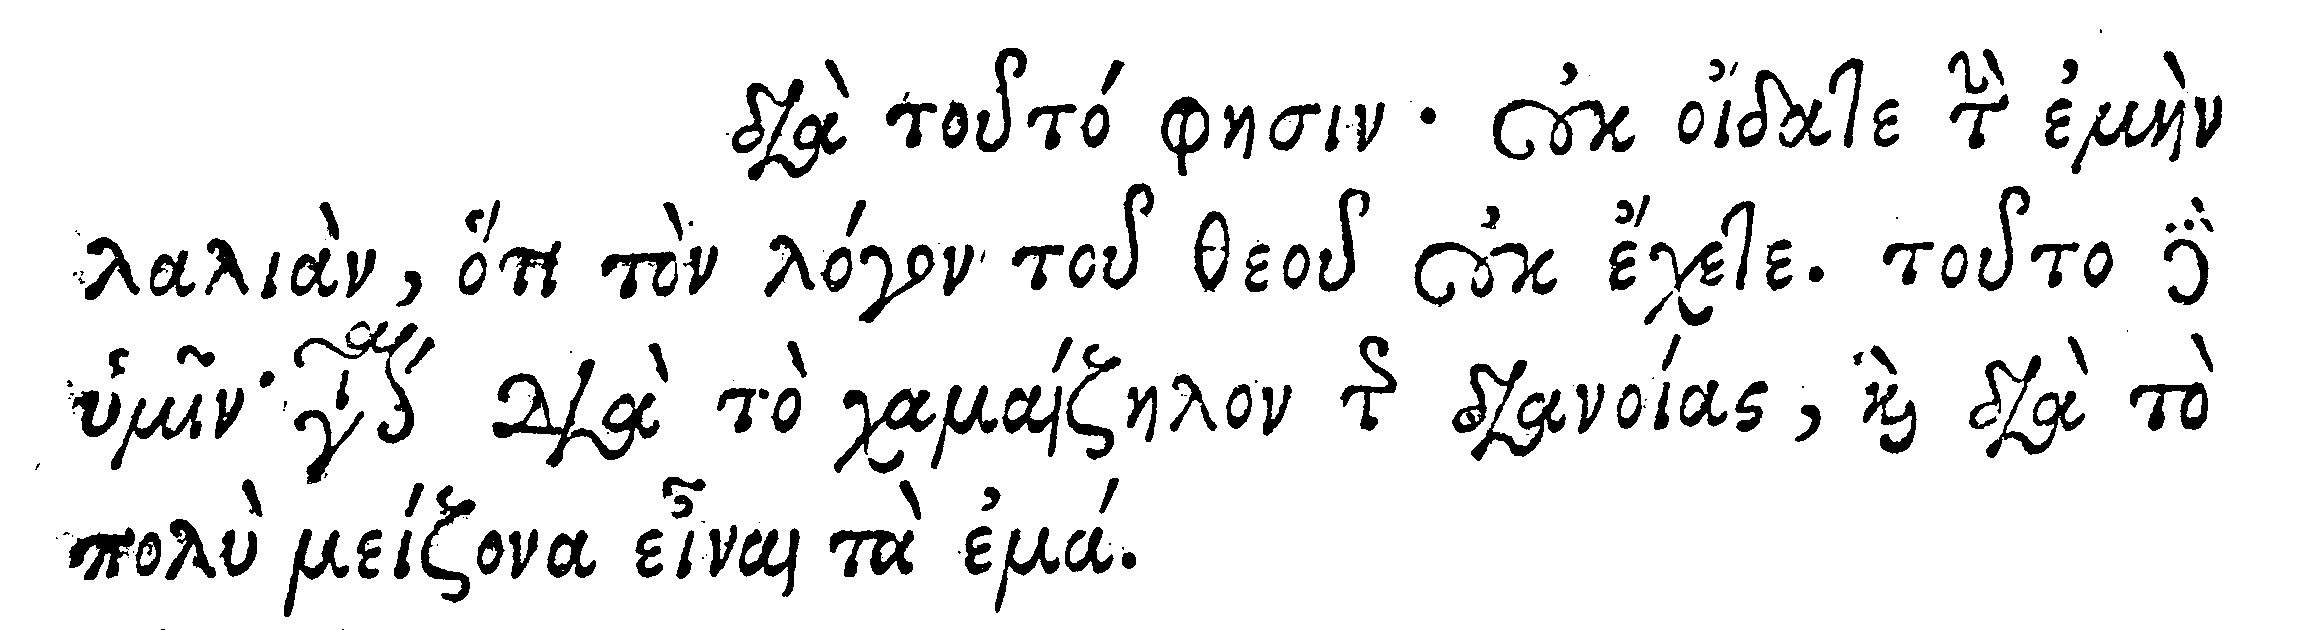 διὰ τοῦτό φησιν· οὐκ οἴδατε τὴν ἐμὴν
λαλιὰν, ὅτι τὸν λόγον τοῦ θεοῦ οὐκ ἔχετε. τοῦτο δὲ
ὑμῖν· γίνεται διὰ τὸ χαμαίζηλον τῆς διανοίας, καὶ διὰ τὸ
πολὺ μείζονα εἶναι τὰ ἐμά.